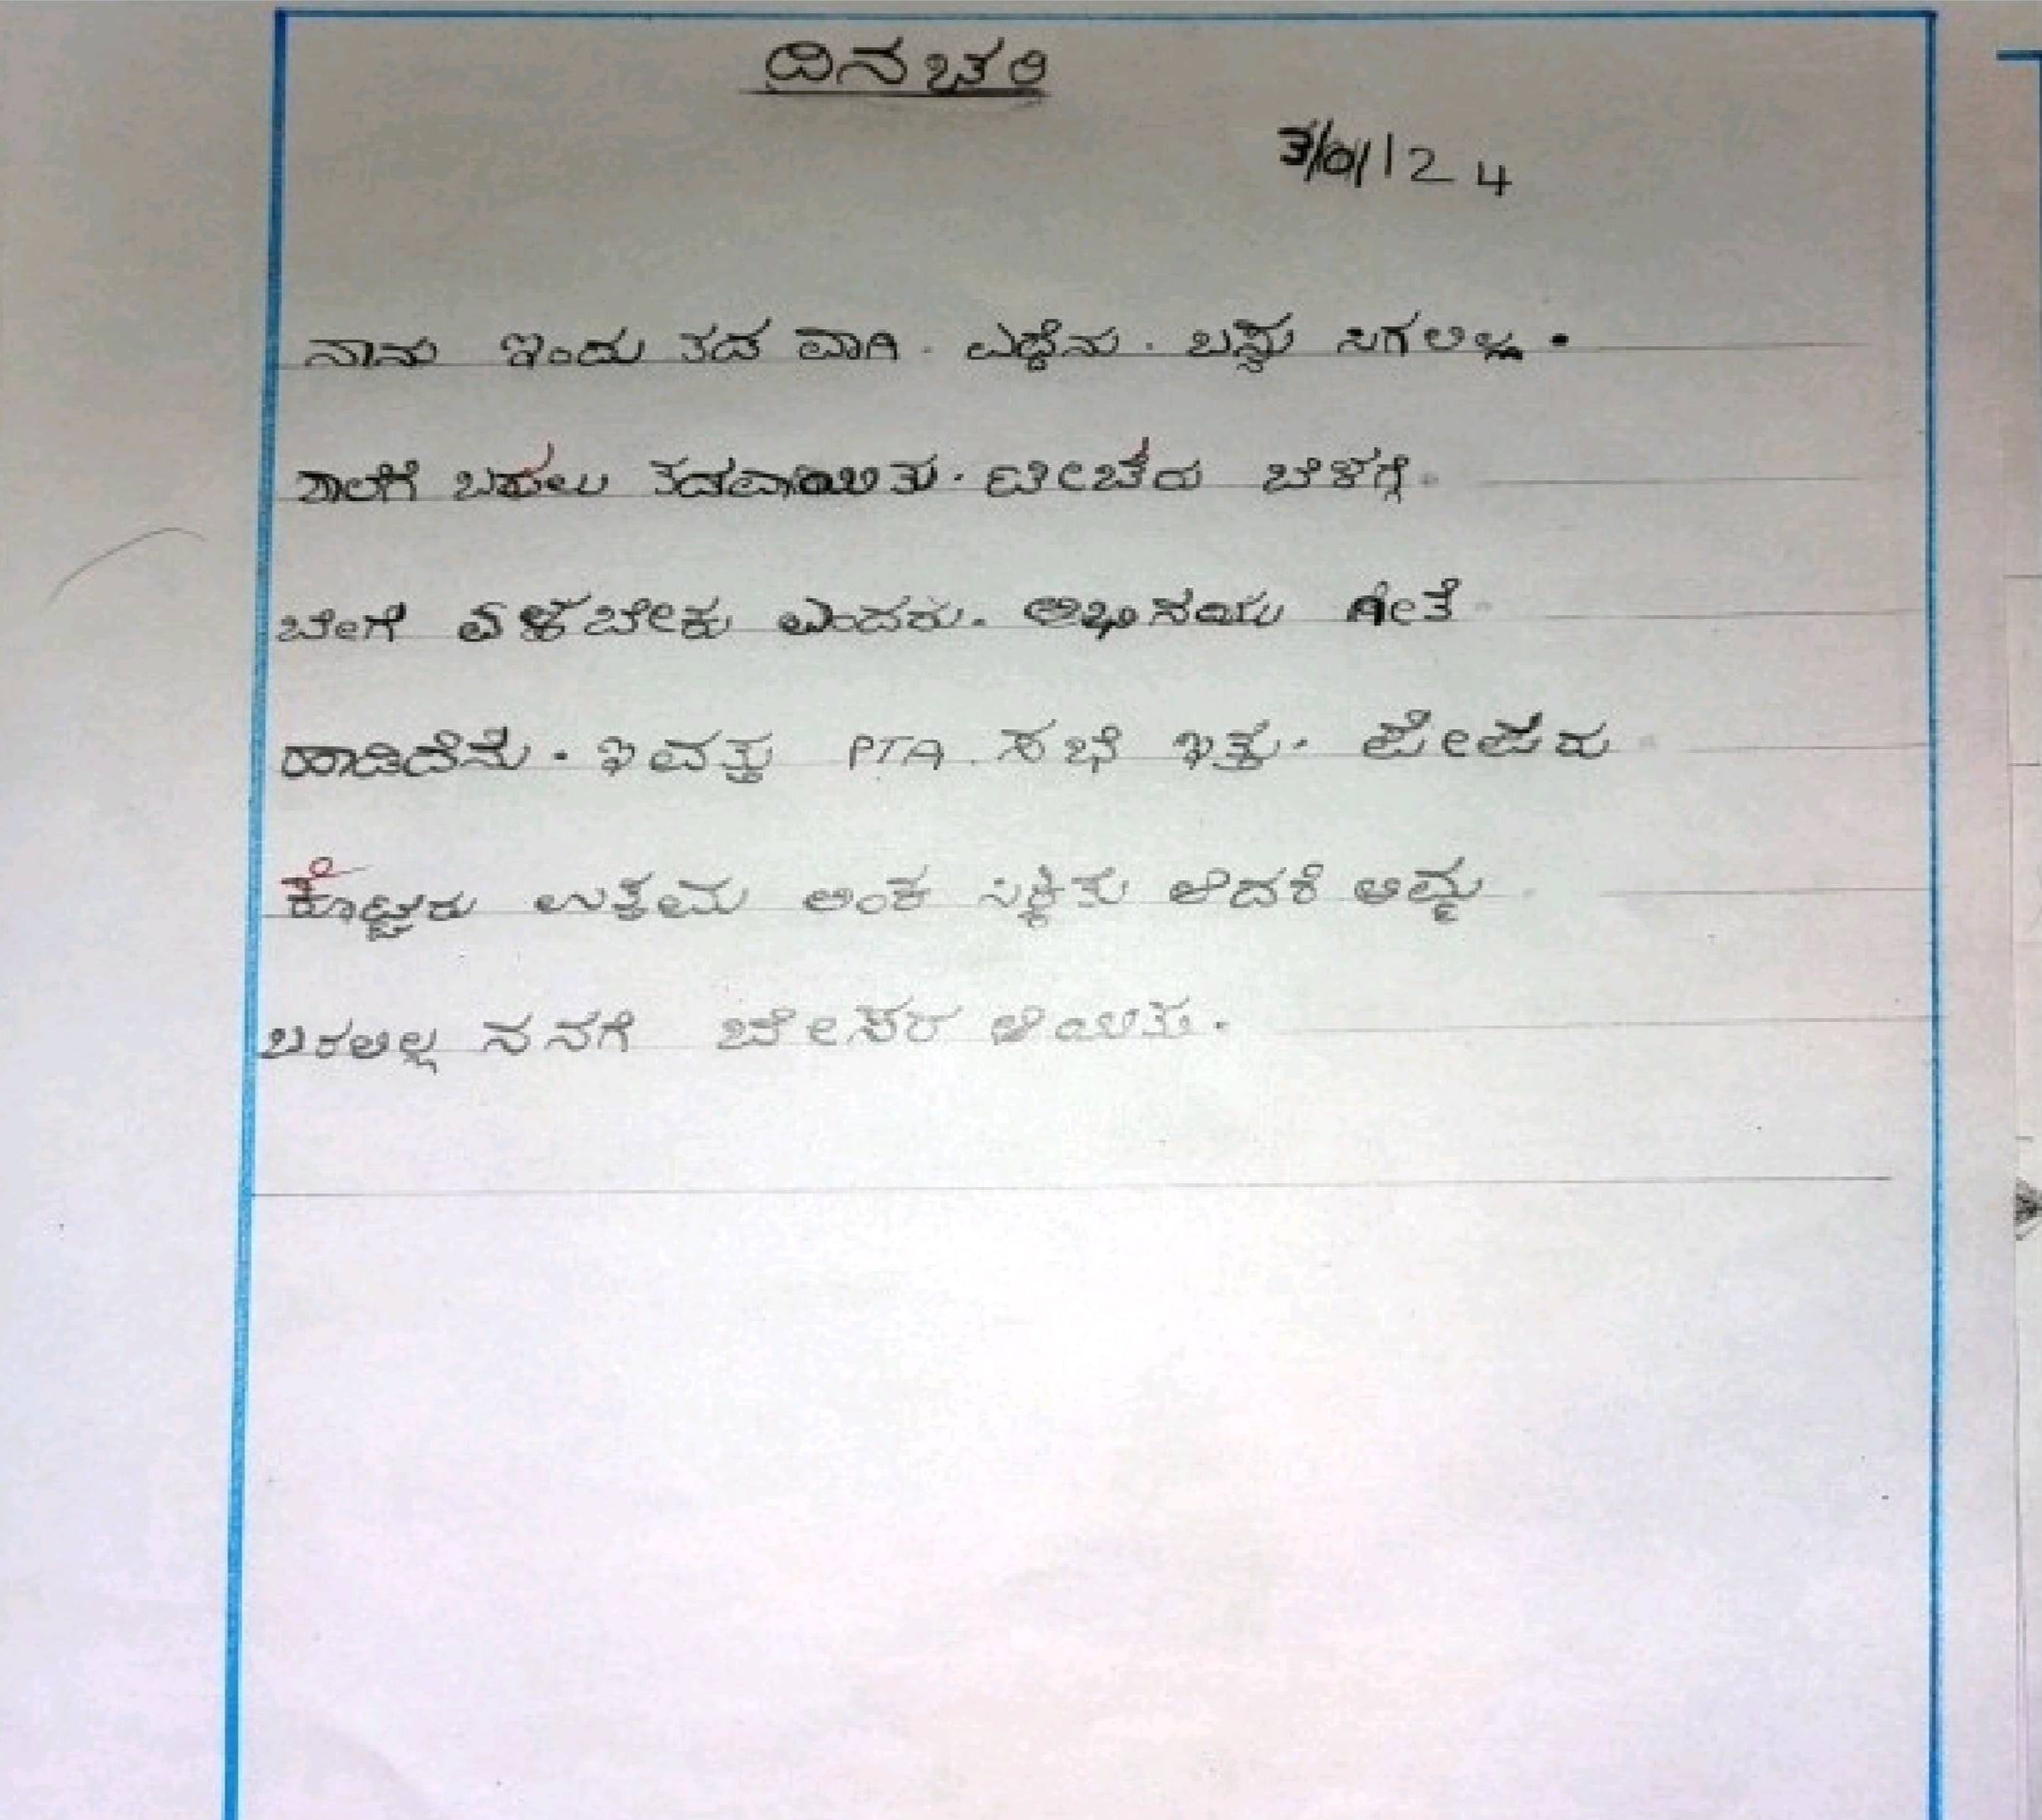 ದಿನಚರಿ
3/01/24
ನಾನು ಇಂದು ತಡ ವಾಗಿ . ಎದ್ದೆನು . ಬಸ್ಸು ಸಿಗಲಿಲ್ಲ .
ಶಾಲೆಗೆ ಬರಲು ತಡವಾಯಿತು . ಟೀಚೆರು ಬೆಳಗ್ಗೆ
ಬೇಗೆ ಏಳಬೇಕು ಎಂದರು . ಅಭಿನಯ ಗೀತೆ
ಹಾಡಿದೆನು . ಇವತ್ತು PTA . ಸಭೆ ಇತ್ತು . ಪೇಪರು
ಕೊಟ್ಟರು ಉತ್ತಮ ಅಂಕ ಸಿಕ್ಕಿತು ಆದರೆ ಅಮ್ಮ
ಬರಲಿಲ್ಲ ನನಗೆ ಬೇಸರ ಆಯಿತು .